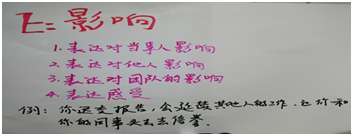 E: 影响
1. 表达对当事人影响
2. 表达对他人影响
3. 表达对团队的影响
4. 表达感受
例：你迟交报告，会延误其他人的工作，让你和
你的同事失去信誉。